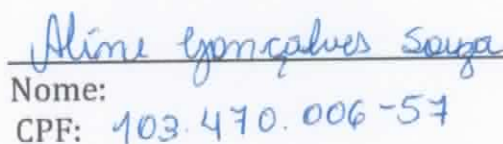 Aline Gonçalves Souza
Nome:
CPF: 103.470.006-57